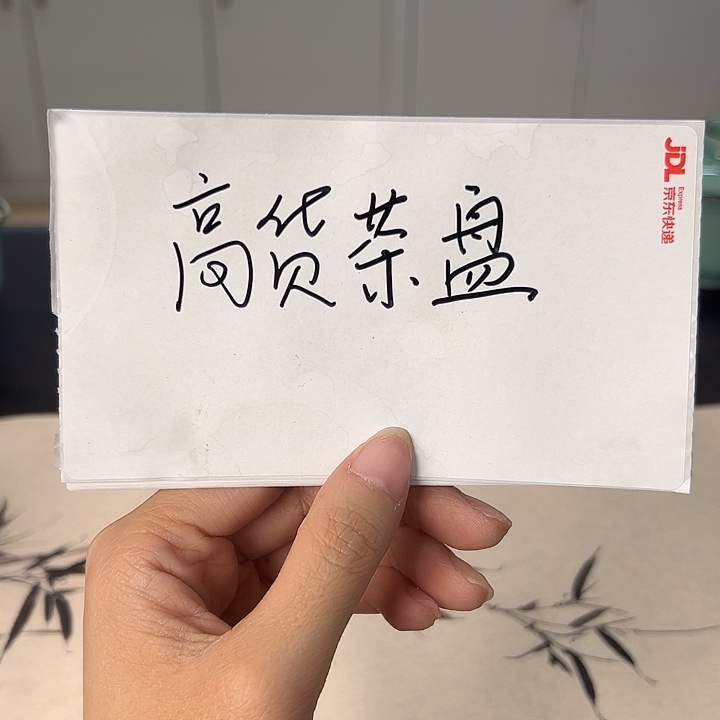 高货茶盘
JDL
Express
京东快递